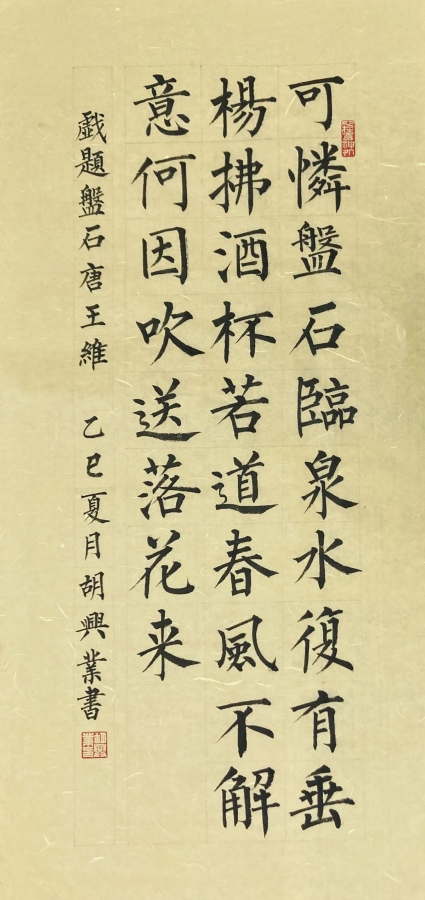 可憐盤石臨泉水復有垂
楊拂酒杯若道春風不解
意何因吹送落花来
戲題盤石唐王維 乙巳夏月胡興業書